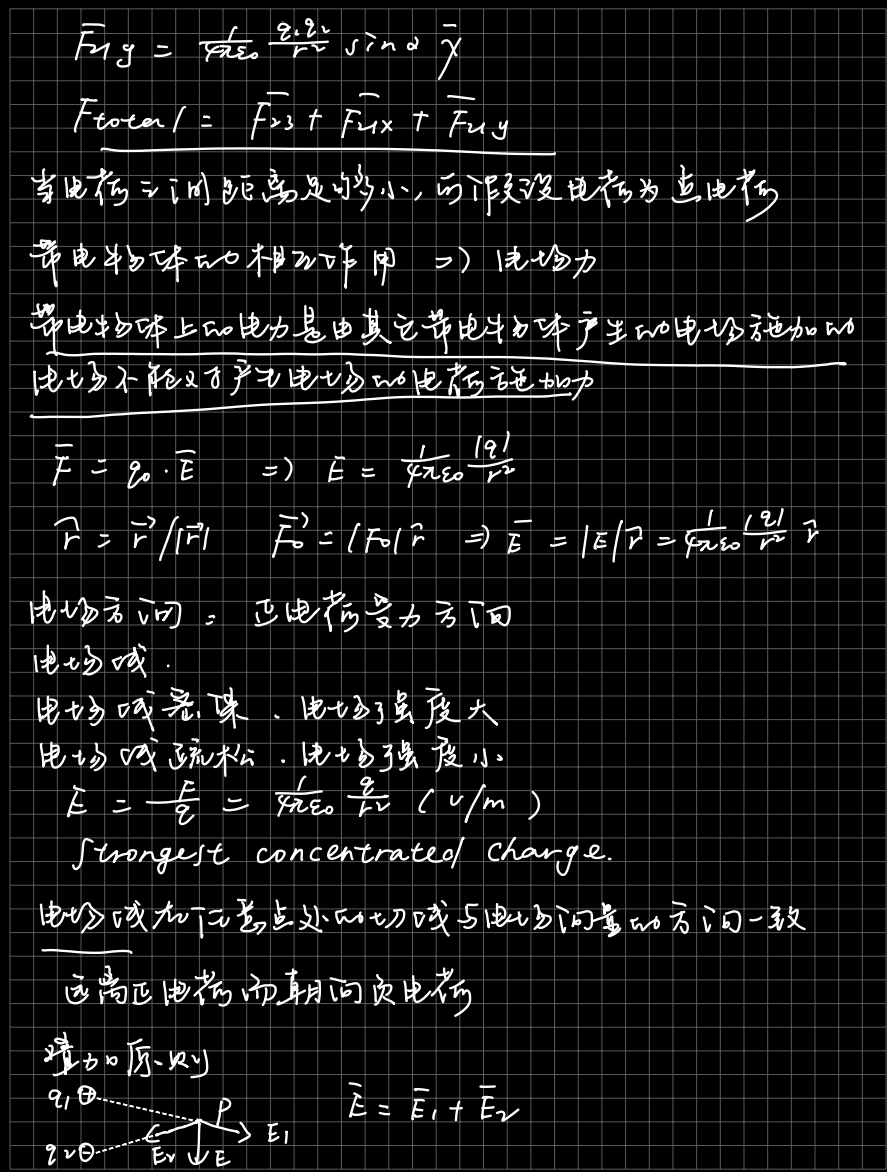 F̄₂₁y = 1/4πε₀ q₁q₂/r² sinα
F̄total = F̄₂₃ + F̄₂₁x + F̄₂₁y
当电荷之间距离足够小，可假设电荷为点电荷
带电物体的相互作用 => 电场力
带电物体上的电力是由其它带电物体产生的电场施加的
电场不能对产生电场的电荷施加力
F̄ = q₀·Ē => E = 1/4πε₀ |q|/r²
r̂ = r⃗/|r⃗| F⃗₀ = |F₀| r̂ => Ē = |E| r̂ = 1/4πε₀ |q|/r² r̂
电场方向: 正电荷受力方向
电场线.
电场线密集. 电场强度大
电场线疏松. 电场强度小.
E = F/q = 1/4πε₀ q/r² (v/m)
Strongest concentrated charge.
电场线在任意点处的切线与电场向量的方向一致
远离正电荷而朝向负电荷
叠加原则
q₁⊕ P E₁ Ē = Ē₁ + Ē₂
q₂⊖ E₂ E